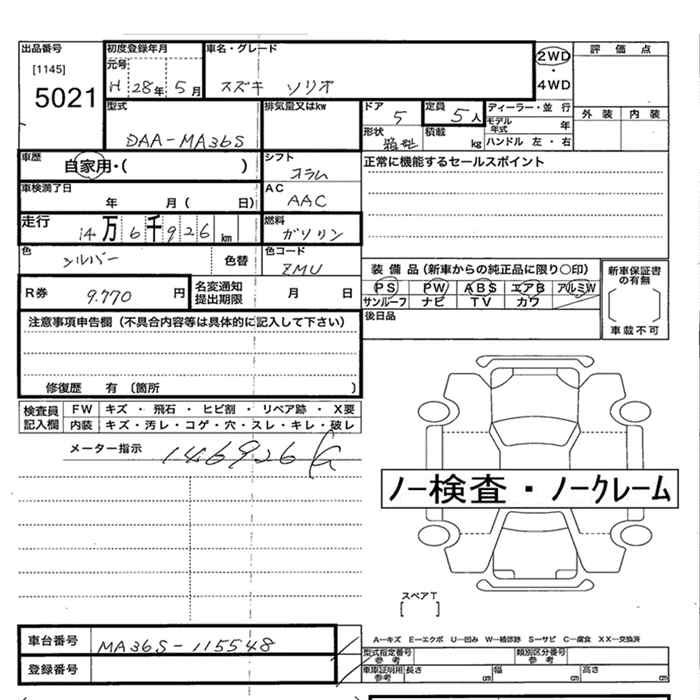 出品番号
[1145]
5021
初度登録年月
元号
H 28年 5月
車名・グレード
スズキ ソリオ
2WD
・
4WD
評価点
外装 内装
型式
DAA-MA36S
排気量又はkw
ドア 5
定員 5人
形状 箱型
積載 kg
ディーラー・並行
モデル年式 年
ハンドル 左・右
車歴
自家用・( )
シフト
コラム
正常に機能するセールスポイント
車検満了日
年 月( 日)
AC
AAC
走行
14万6千926km
燃料
ガソリン
色
シルバー
色替
色コード
ZMU
R券 9.770円
名変通知
提出期限
月 日
装備品(新車からの純正品に限り○印)
PS PW ABS エアB アルミW
サンルーフ ナビ TV カワ
新車保証書
の有無
車載不可
後日品
注意事項申告欄(不具合内容等は具体的に記入して下さい)
修復歴 有 (箇所 )
検査員
記入欄
FW キズ・飛石・ヒビ割・リペア跡・X要
内装 キズ・汚レ・コゲ・穴・スレ・キレ・破レ
メーター指示 146926
ノー検査・ノークレーム
スペアT
[ ]
車台番号 MA36S-115548
登録番号
A-キズ E-エクボ U-凹み W-補修跡 S-サビ C-腐食 XX-交換済
型式指定番号
参考
類別区分番号
参考
車庫証明用
参考
長さ cm 幅 cm 高さ cm